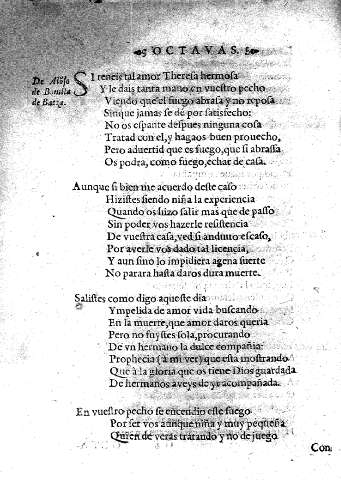 OCTAVAS.
De Alõso
de Bonilla
de Baeza.
SI teneis tal amor Theresa hermosa
Y le dais tanta mano en vuestro pecho
Viendo que el fuego abrasa y no reposa
Sin que jamas se dè por satisfecho:
No os espante despues ninguna cosa
Tratad con el, y hagaos buen prouecho,
Pero aduertid que es fuego, que si abrassa
Os podra, como fuego, echar de casa.
Aunque si bien me acuerdo deste caso
Hizistes siendo niña la experiencia
Quando os hizo salir mas que de passo
Sin poder vos hazerle resistencia
De vuestra casa, ved si anduuo escaso,
Por averle vos dado tal licencia,
Y aun sino lo impidiera agena suerte
No parara hasta daros dura muerte.
Salistes como digo aqueste dia
Y mpelida de amor vida buscando
En la muerte, que amor daros queria
Pero no fuystes sola, procurando
De vn hermano la dulce compañia:
Prophecia (à mi ver) que esta mostrando
Que à la gloria que os tiene Dios guardada
De hermanos aveys de yr acompañada.
En vuestro pecho se encendio este fuego
Por ser vos aunque niña y muy pequeña
Quien de veras tratando y no de juego
Con